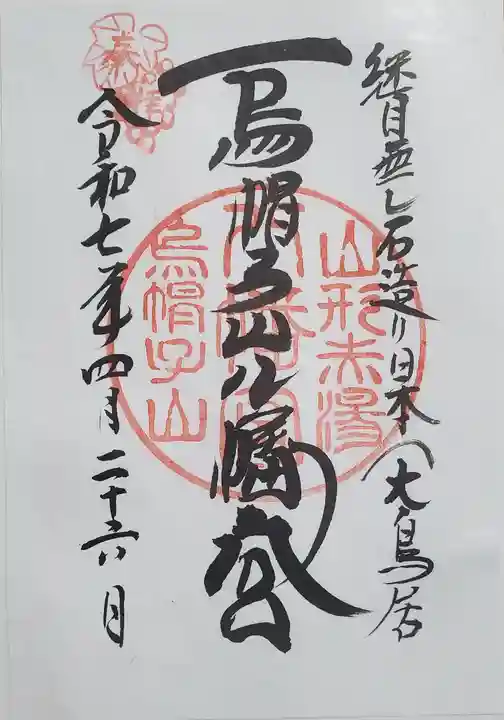 継目無し石造り日本一大鳥居
烏帽子山八幡宮
令和七年四月二十六日
山形赤湯
八幡宮
烏帽子山